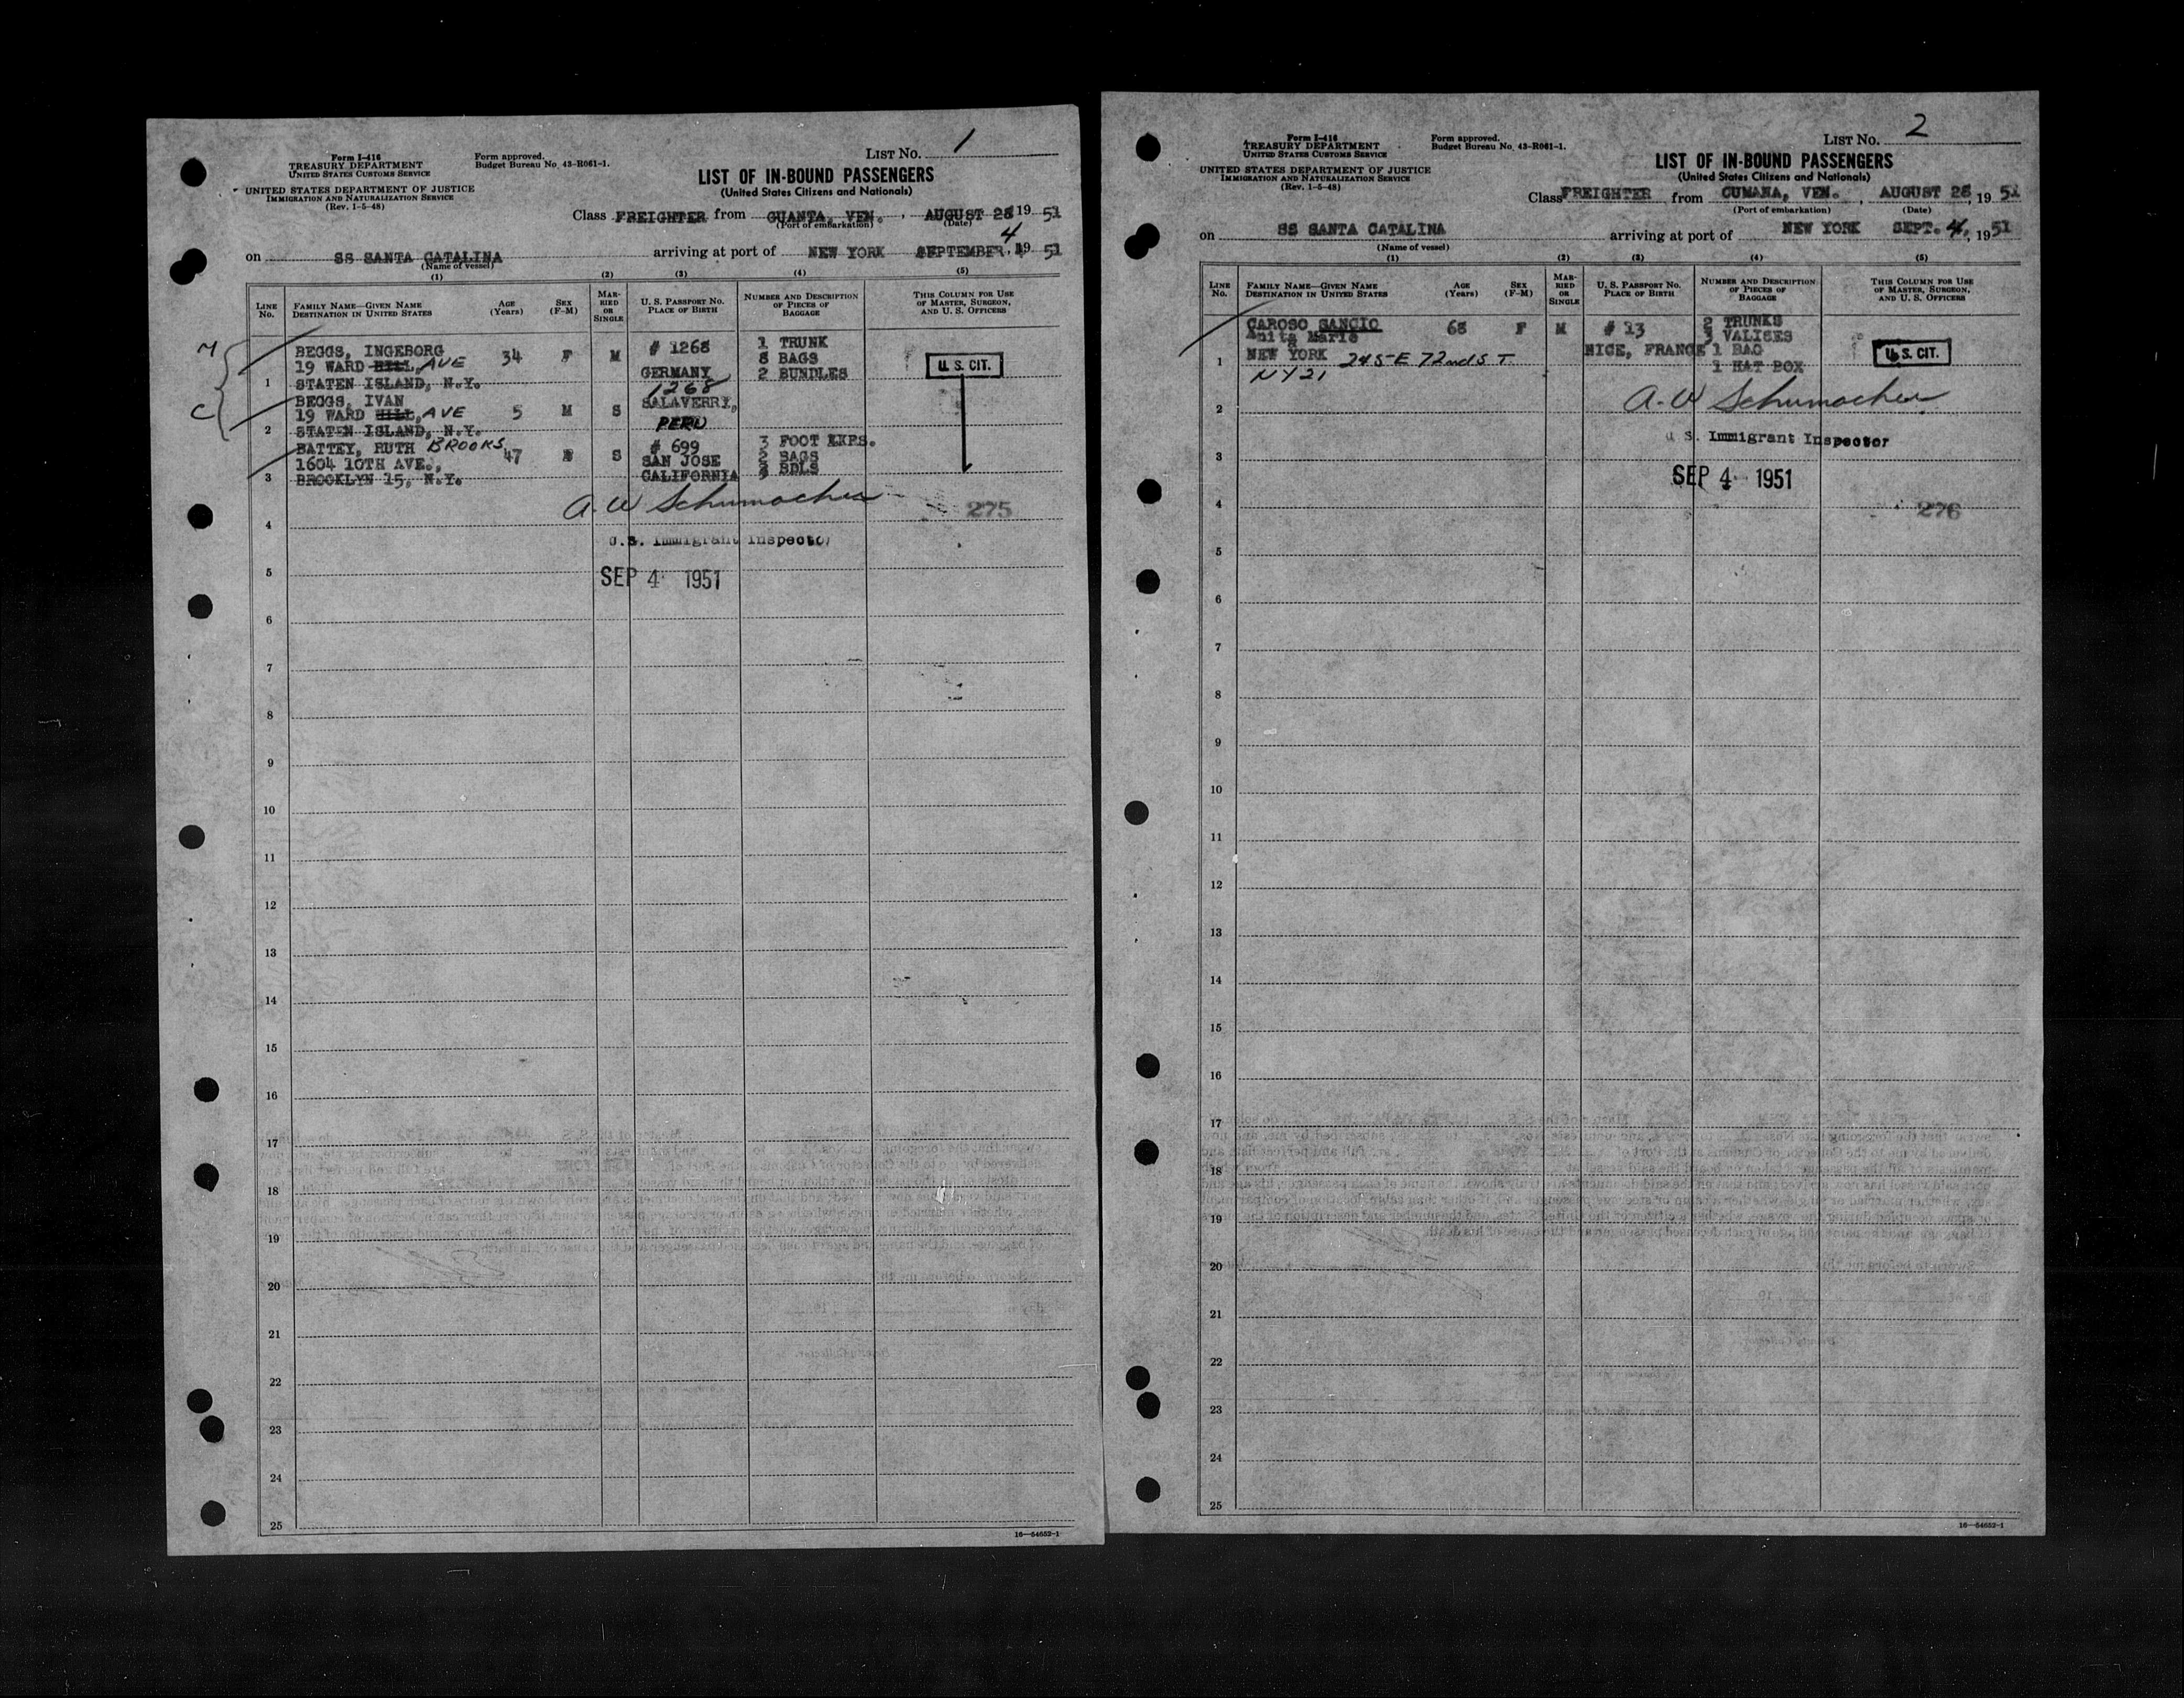 Form I-416
TREASURY DEPARTMENT
UNITED STATES CUSTOMS SERVICE
UNITED STATES DEPARTMENT OF JUSTICE
IMMIGRATION AND NATURALIZATION SERVICE
(Rev. 1-5-48)
Form approved.
Budget Bureau No. 43-R061-1.
LIST NO. 1
LIST OF IN-BOUND PASSENGERS
(United States Citizens and Nationals)
Class FREIGHTER from GUANTA, VEN. , AUGUST 28 19 51
(Port of embarkation) (Date)
on SS SANTA CATALINA arriving at port of NEW YORK SEPTEMBER 4, 19 51
(Name of vessel)
(1) (2) (3) (4) (5)
LINE NO. FAMILY NAME—GIVEN NAME DESTINATION IN UNITED STATES AGE (Years) SEX (F-M) MARRIED OR SINGLE U. S. PASSPORT NO. PLACE OF BIRTH NUMBER AND DESCRIPTION OF PIECES OF BAGGAGE THIS COLUMN FOR USE OF MASTER, SURGEON, AND U. S. OFFICERS
M
BEGGS, INGEBORG 34 F M # 1268 1 TRUNK
19 WARD HILL, AVE 8 BAGS U. S. CIT.
1 STATEN ISLAND, N.Y. GERMANY 2 BUNDLES
C
BEGGS, IVAN 1268
19 WARD HILL, AVE 5 M S SALAVERRI,
2 STATEN ISLAND, N.Y. PERU
BATTEY, RUTH BROOKS 47 S # 699 3 FOOT LKRS.
1604 10TH AVE., SAN JOSE BAGS
3 BROOKLYN 15, N.Y. CALIFORNIA BDLS
A. W Schumacher
4 275
U.S. Immigrant Inspector
5 SEP 4 1951
6
7
8
9
10
11
12
13
14
15
16
17
18
19
20
21
22
23
24
25
16—54652-1
Form I-416
TREASURY DEPARTMENT
UNITED STATES CUSTOMS SERVICE
UNITED STATES DEPARTMENT OF JUSTICE
IMMIGRATION AND NATURALIZATION SERVICE
(Rev. 1-5-48)
Form approved.
Budget Bureau No. 43-R061-1.
LIST NO. 2
LIST OF IN-BOUND PASSENGERS
(United States Citizens and Nationals)
Class FREIGHTER from CUMANA, VEN. , AUGUST 28, 19 51
(Port of embarkation) (Date)
on SS SANTA CATALINA arriving at port of NEW YORK SEPT. 4, 19 51
(Name of vessel)
(1) (2) (3) (4) (5)
LINE NO. FAMILY NAME—GIVEN NAME DESTINATION IN UNITED STATES AGE (Years) SEX (F-M) MARRIED OR SINGLE U. S. PASSPORT NO. PLACE OF BIRTH NUMBER AND DESCRIPTION OF PIECES OF BAGGAGE THIS COLUMN FOR USE OF MASTER, SURGEON, AND U. S. OFFICERS
CAROSO SANCIO 68 F M # 13 2 TRUNKS
Anita Marie 3 VALISES
1 NEW YORK 245 E 72nd ST NICE, FRANCE 1 BAG U. S. CIT.
NY 21 1 HAT BOX
2 A. W Schumacher
U. S. Immigrant Inspector
3
SEP 4 1951
4 276
5
6
7
8
9
10
11
12
13
14
15
16
17
18
19
20
21
22
23
24
25
16—54652-1